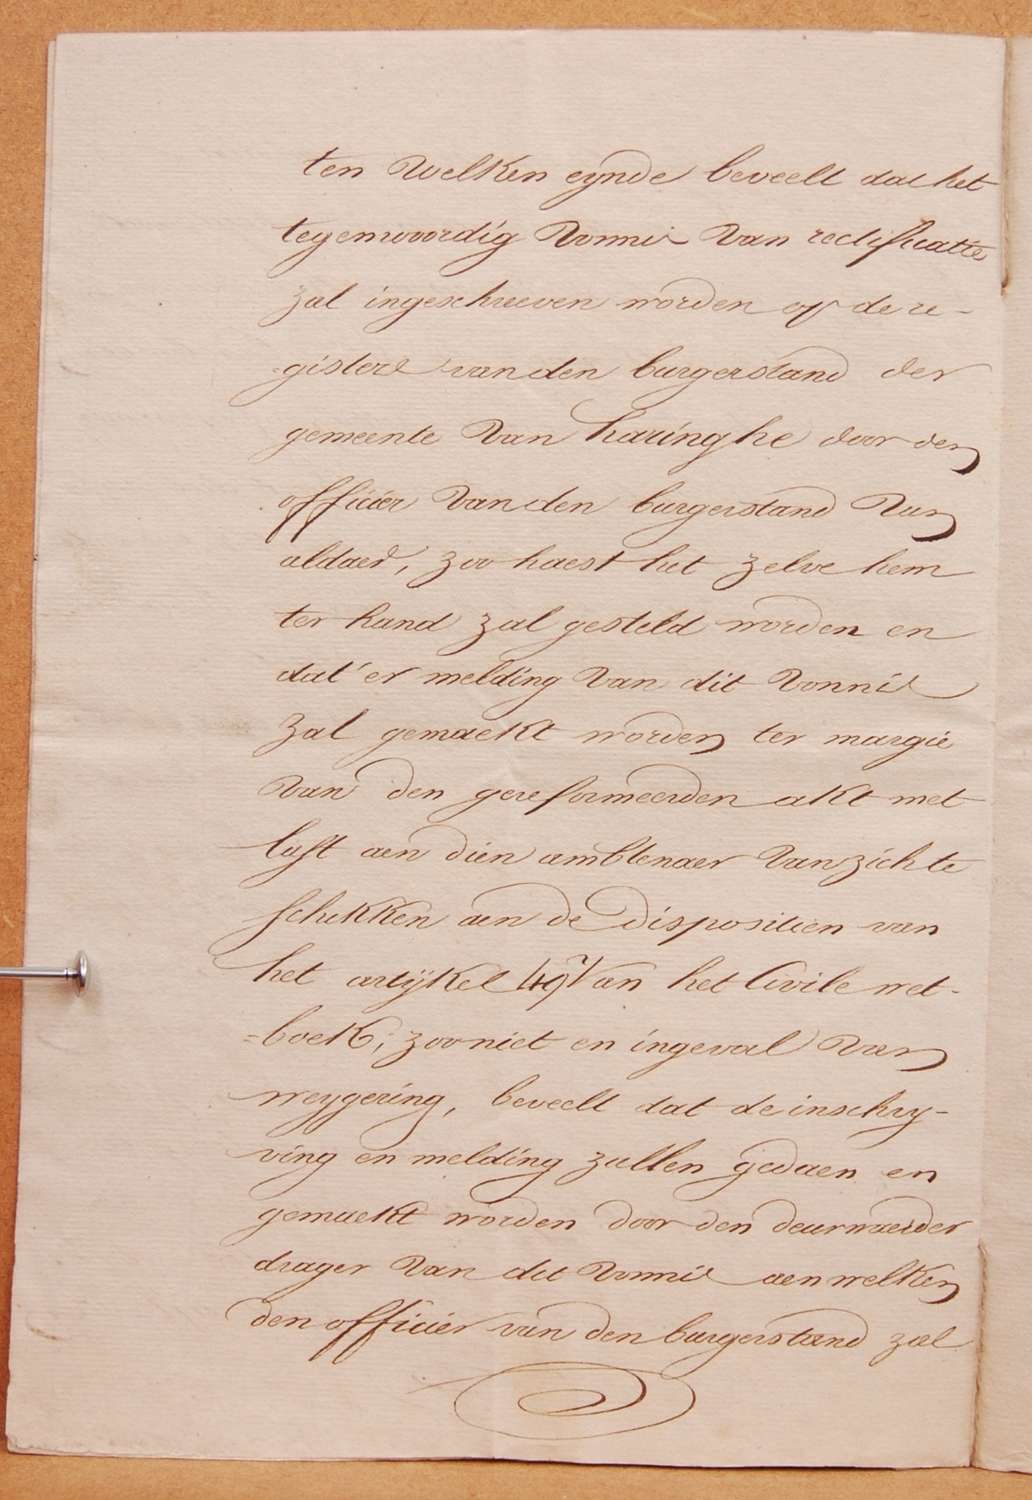 ten welken eynde beveelt dat het
tegenwoordig vonnis van rectificatie
zal ingeschreeven worden op de re-
gisters van den burgerstand der
gemeente van haringhe door den
officier van den burgerstand van
aldaer, zoo haest het zelve hem
ter hand zal gesteld worden en
dat'er melding van dit vonnis
zal gemaekt worden ter margie
van den gereformeerden akt met
last aen dien ambtenaer van zich te
schikken aen de dispositien van
het artijkel 49 van het Civile wet-
=boek; zoo niet en ingeval van
weygering, beveelt dat de inschry-
ving en melding zullen gedaen en
gemaekt worden door den deurwaerder
drager van dit vonnis aen welken
den officier van den burgerstand zal